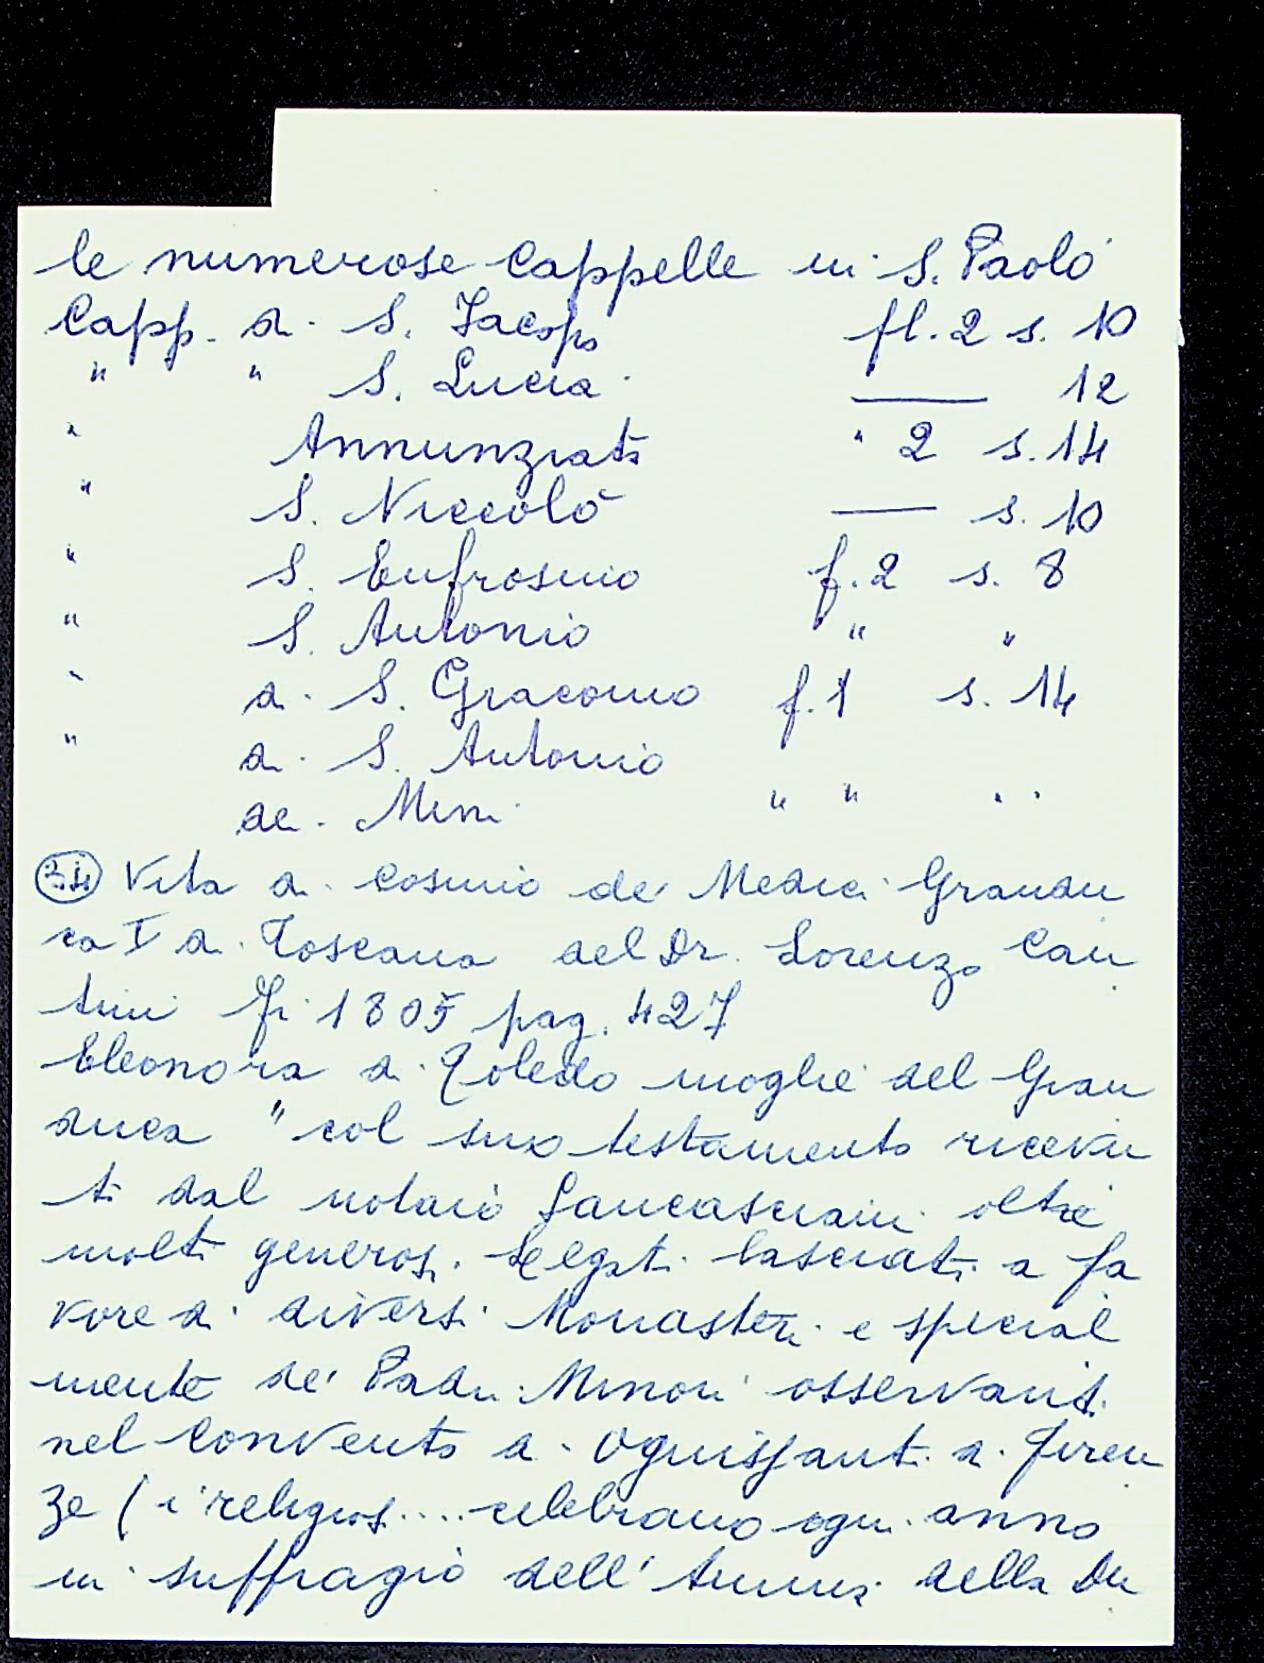 le numerose Cappelle in S. Paolo
Capp. di S. Iacopo fl. 2 s. 10
" " S. Lucia —— 12
" Annunziata " 2 s. 14
" S. Niccolò —— s. 10
" S. Eufrosino f. 2 s. 8
" S. Antonio " "
" di S. Giacomo f. 1 s. 14
" di S. Antonio
dei Mini " " " "
34 Vita di Cosimo de' Medici Grandu
ca I di Toscana del Dr. Lorenzo Can
tini Fi 1805 pag. 427
Eleonora di Toledo moglie del Gran
duca " col suo testamento ricevu
to dal notaio oltre
molti generosi Legati lasciati a fa
vore di diversi Monasteri e special
mente de' Padri Minori osservanti
nel Convento di Ognissanti di Firen
ze ( i religiosi .... celebrano ogni anno
in suffragio dell' Anima della Du